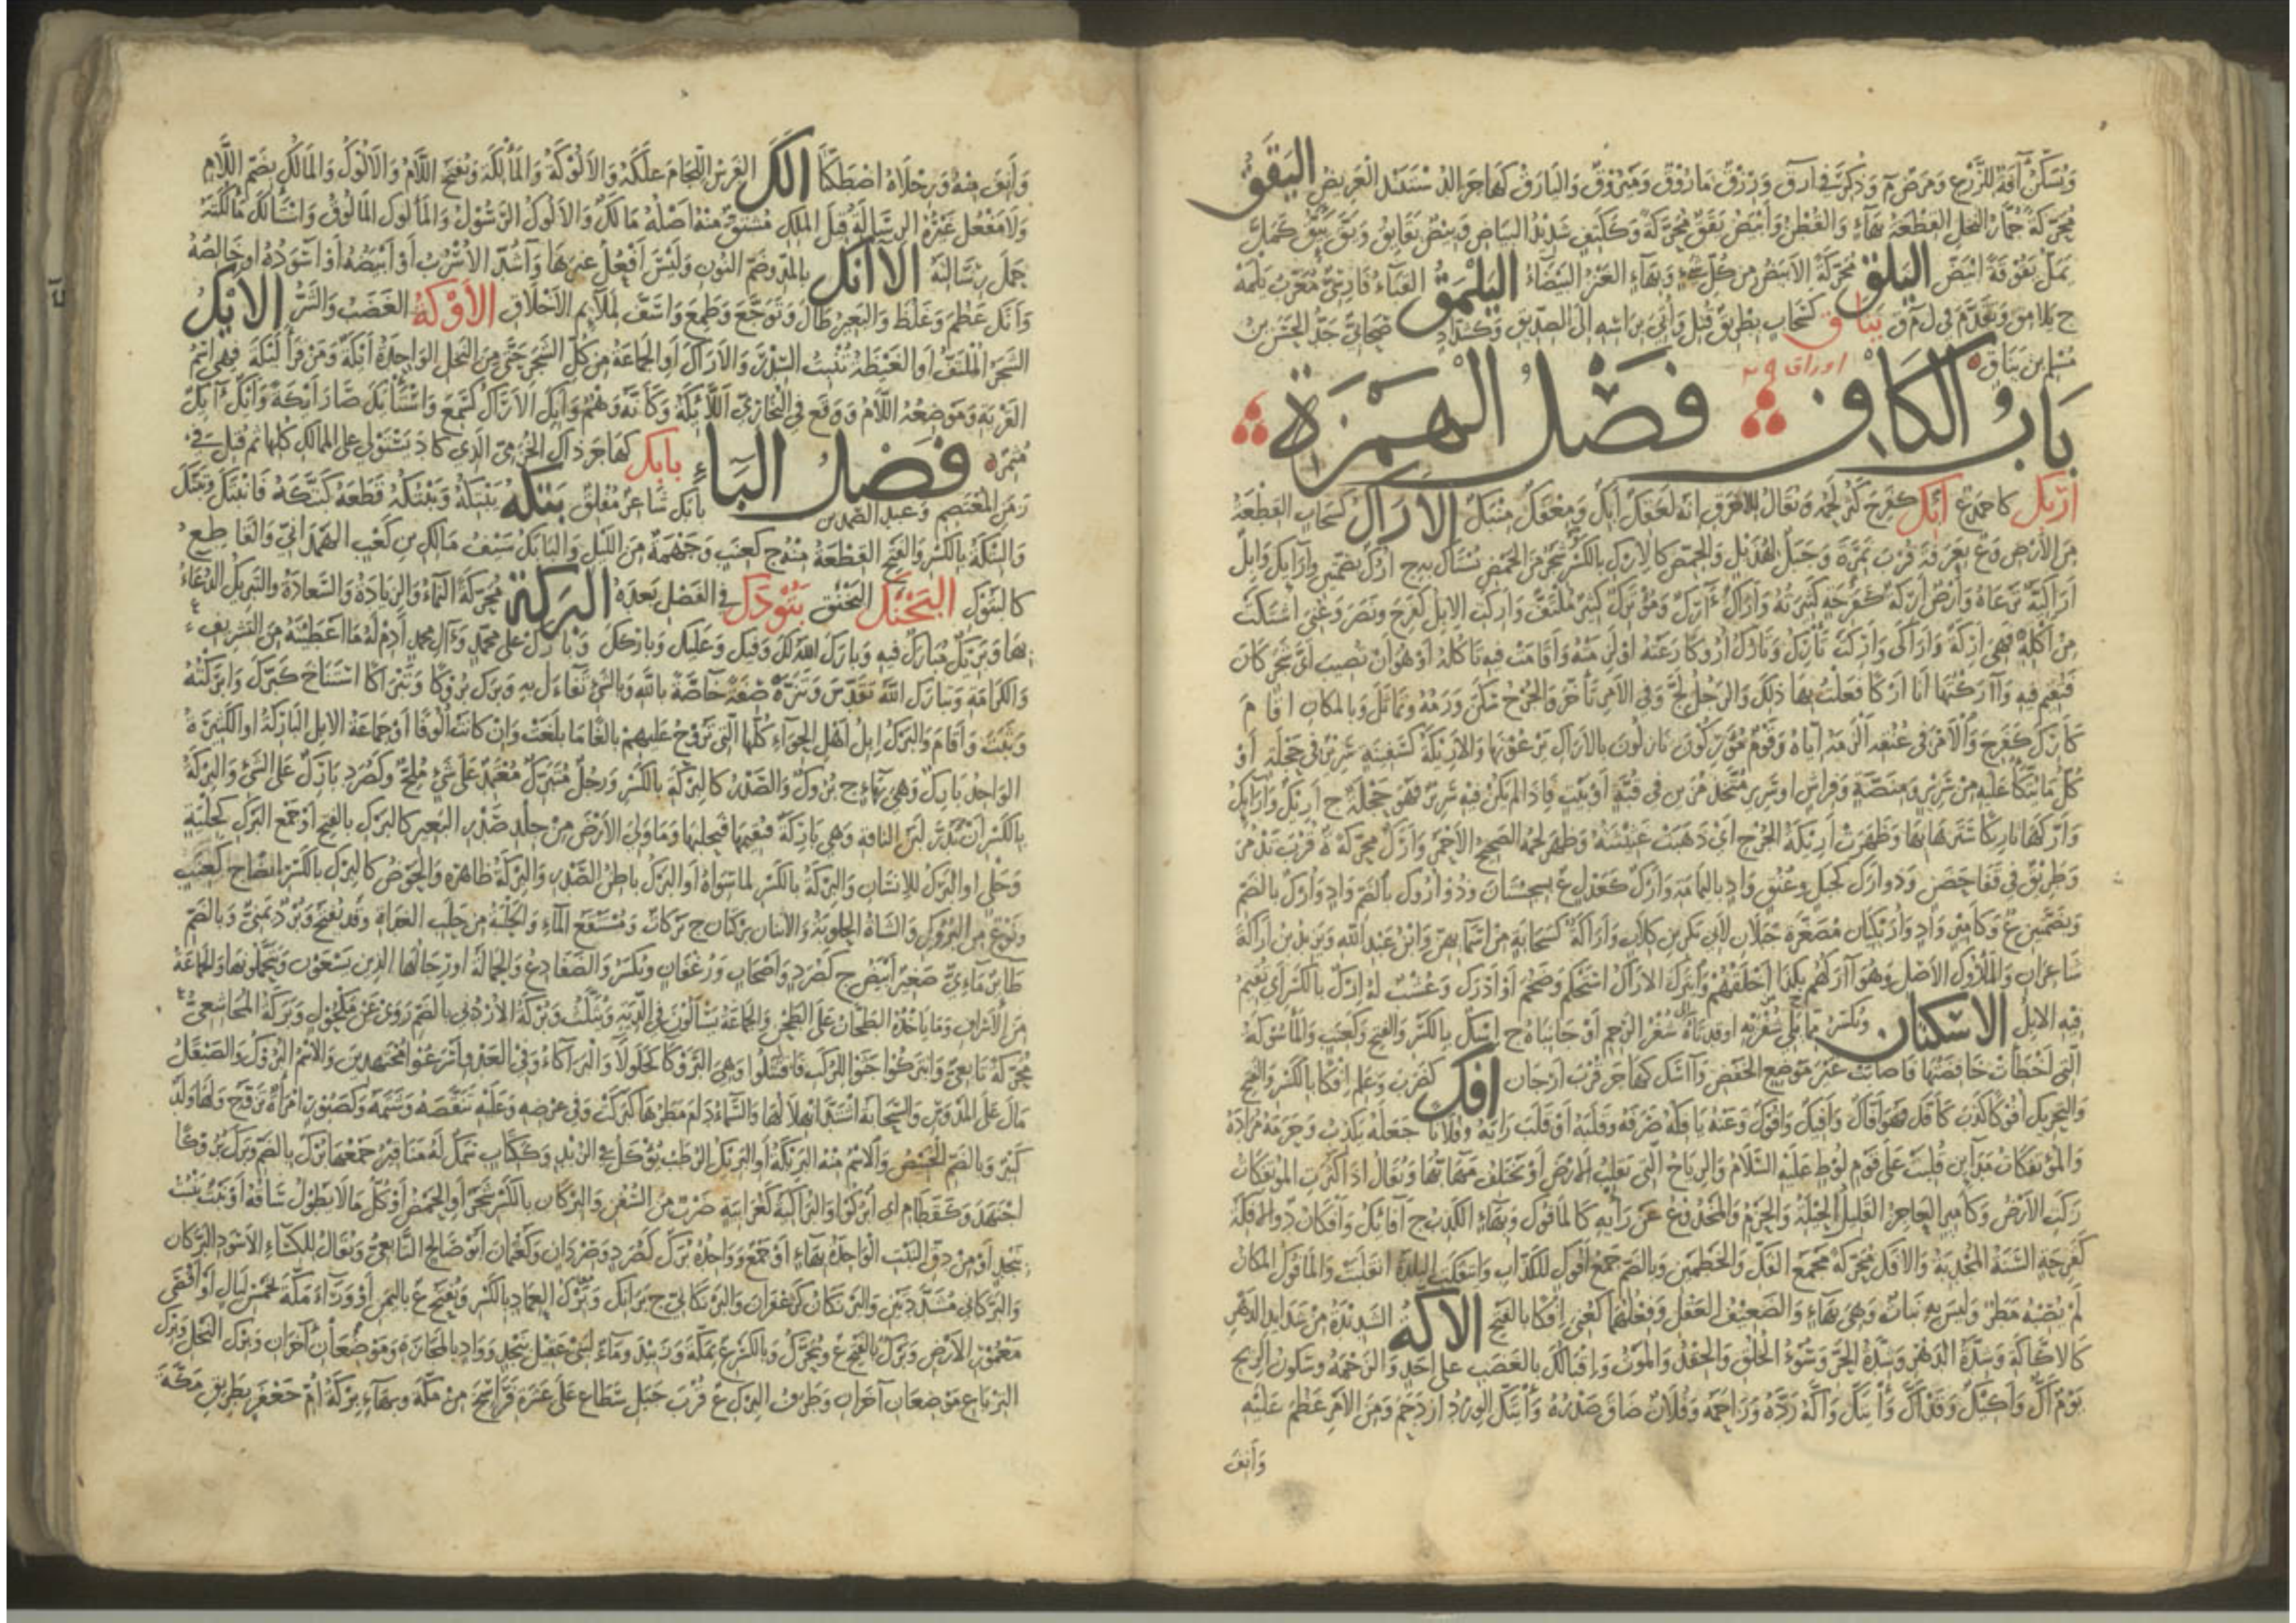 وَيُسَكَّنُ آفَةٌ للزَّرْعِ وَمَرَضٌ م وَذُكِرَتْ فِي أرق وَزَرْعٌ مَأْرُوقٌ وَمَيْرُوقٌ وَالْيَارَقُ كَهَاجَرَ الدَّسْتَبَنْدُ الْعَرِيضُ اليَقَقُ
مُحَرَّكَةً جُمَّارُ النَّخْلِ القِطْعَةُ بِهَاءٍ وَالقُطْنُ وَأَبْيَضُ يَقَقٌ مُحَرَّكَةً وَكَكَتِفٍ شَدِيدُ البَيَاضِ ق بِيضٌ يَقَايِقُ وَيَقَّ يَيَقُّ كَمَلَّ
يَمَلُّ يُقُوقَةً ابْيَضَّ اليَلَقُ مُحَرَّكَةً الأبْيَضُ مِنْ كُلِّ شَيْءٍ وَبِهَاءٍ العَنْزُ البَيْضَاءُ اليَلْمَقُ القَبَاءُ فَارِسِيٌّ مُعَرَّبُ يَلْمَهْ
ج يَلَامِقُ وَتَقَدَّمَ فِي ل م ق يَنَاقُ كَسَحَابٍ بِطْرِيقٌ قُتِلَ وَأُتِيَ بِرَأْسِهِ إِلَى الصِّدِّيقِ وَكَشَدَّادٍ صَحَابِيٌّ جَدُّ الحَسَنِ بْنِ
مُسْلِمِ بْنِ يَنَاقٍ
بَابُ الكَافِ فَصْلُ الْهَمْزَةِ
اوراق ٢٩
أَرْبَكُ كَأَحْمَدَ ع أَبِكَ كَفَرِحَ كَثُرَ لَحْمُهُ وَيُقَالُ لِلأَخْرَقِ إِنَّهُ لَعَفِكٌ أَبِكٌ وَمِعْفَكٌ مِئْبَكٌ الأَرَاكُ كَسَحَابٍ القِطْعَةُ
مِنَ الأَرْضِ وَع بِعَرَفَةَ قُرْبَ نَمِرَةَ وَجَبَلٌ لِهُذَيْلٍ وَالحَمْضُ كَالإِرْكِ بِالكَسْرِ وَشَجَرٌ مِنَ الحَمْضِ يُسْتَاكُ بِهِ ج أُرُكٌ بِضَمَّتَيْنِ وَأَرَائِكُ وَإِبِلٌ
أَرَاكِيَّةٌ تَرْعَاهُ وَأَرْضٌ أَرِكَةٌ كَفَرِحَةٍ كَثِيرَتُهُ وَأَرَاكٌ أَرِكٌ وَمُؤْتَرِكٌ كَثِيرٌ مُلْتَفٌّ وَأَرِكَتِ الإِبِلُ كَفَرِحَ وَنَصَرَ وَعُنِيَ اشْتَكَتْ
مِنْ أَكْلِهِ فَهِيَ أَرِكَةٌ وَأَرَاكَى وَأَرَكَتْ تَأْرِكُ وَتَأْرُكُ أُرُوكًا رَعَتْهُ أَوْ لَزِمَتْهُ وَأَقَامَتْ فِيهِ تَأْكُلُهُ أَوْ هُوَ أَنْ تُصِيبَ أَيَّ شَجَرٍ كَانَ
فَتُقِيمَ فِيهِ وَآرَكْتُهَا أَنَا أَرْكًا فَعَلْتُ بِهَا ذَلِكَ وَالرَّجُلُ لَجَّ وَفِي الأَمْرِ تَأَخَّرَ وَالجُرْحُ سَكَنَ وَرَمُهُ وَتَمَاثَلَ وَبِالمَكَانِ أَقَامَ
كَأَرِكَ كَفَرِحَ وَالأَمْرَ فِي عُنُقِهِ أَلْزَمَهُ إِيَّاهُ وَقَوْمٌ مُؤْرِكُونَ نَازِلُونَ بِالأَرَاكِ يَرْعَوْنَهَا وَالأَرِيكَةُ كَسَفِينَةٍ سَرِيرٌ فِي حَجَلَةٍ أَوْ
كُلُّ مَا يُتَّكَأُ عَلَيْهِ مِنْ سَرِيرٍ وَمِنَصَّةٍ وَفِرَاشٍ أَوْ سَرِيرٌ مُتَّخَذٌ مُزَيَّنٌ فِي قُبَّةٍ أَوْ بَيْتٍ فَإِذَا لَمْ يَكُنْ فِيهِ سَرِيرٌ فَهُوَ حَجَلَةٌ ج أَرِيكٌ وَأَرَائِكُ
وَأَرَّكَهَا تَأْرِيكًا سَتَرَهَا بِهَا وَظَهَرَتْ أَرِيكَةُ الجُرْحِ أَيْ ذَهَبَتْ غَثِيثَتُهُ وَظَهَرَ لَحْمُهُ الصَّحِيحُ الأَحْمَرُ وَأَرَكٌ مُحَرَّكَةً ة قُرْبَ تَدْمُرَ
وَطَرِيقٌ فِي قَفَا حَضَنٍ وَذُو أَرَكٍ كَجَبَلٍ وَعُنُقٍ وَادٍ بِاليَمَامَةِ وَأَرْكٌ كَعَدْلٍ ع بِسِجِسْتَانَ وَذُو أَرُوكٍ بِالضَّمِّ وَادٍ وَأُرْكٌ بِالضَّمِّ
وَبِضَمَّتَيْنِ ع وَكَأَمِيرٍ وَادٍ وَأُرَيْكَتَانِ مُصَغَّرَةً جَبَلَانِ لأَبِي بَكْرِ بْنِ كِلَابٍ وَأَرَاكَةُ كَسَحَابَةٍ مِنْ أَسْمَائِهِنَّ وَابْنُ عَبْدِ اللهِ وَيَزِيدُ بْنُ أَرَاكَةَ
شَاعِرَانِ وَالمَأْرُوكُ الأَصْلُ وَهُوَ آرَكُهُمْ بِكَذَا أَخْلَقُهُمْ وَائْتَرَكَ الأَرَاكُ اسْتَحْكَمَ وَضَخُمَ أَوْ أَدْرَكَ وَعُشْبٌ لَهُ إِرْكٌ بِالكَسْرِ أَيْ تُقِيمُ
فِيهِ الإِبِلُ الأَسْكَتَانِ وَيُكْسَرُ مِمَّا يَلِي شُفْرَيْهِ أَوْ قُذَّتَاهُ شُفْرُ الرَّحِمِ أَوْ جَانِبَاهُ ج إِسْكٌ بِالكَسْرِ وَالفَتْحِ وَكَعِنَبٍ وَالمَأْسُوكَةُ
الَّتِي أَخْطَأَتْ خَافِضَتُهَا فَأَصَابَتْ غَيْرَ مَوْضِعِ الخَفْضِ وَآسَكُ كَهَاجَرَ قُرْبَ أَرَّجَانَ أَفَكَ كَضَرَبَ وَعَلِمَ إِفْكًا بِالكَسْرِ وَالفَتْحِ
وَالتَّحْرِيكِ أُفُوكًا كَذَبَ كَأَفَّكَ فَهُوَ أَفَّاكٌ وَأَفِيكٌ وَأَفُوكٌ وَعَنْهُ يَأْفِكُهُ صَرَفَهُ وَقَلَبَهُ أَوْ قَلَبَ رَأْيَهُ وَفُلَانًا جَعَلَهُ يَكْذِبُ وَحَرَمَهُ مُرَادَهُ
وَالمُؤْتَفِكَاتُ مَدَائِنُ قُلِبَتْ عَلَى قَوْمِ لُوطٍ عَلَيْهِ السَّلَامُ وَالرِّيَاحُ الَّتِي تَقْلِبُ الأَرْضَ أَوْ تَخْتَلِفُ مَهَابُّهَا وَيُقَالُ إِذَا كَثُرَتِ المُؤْتَفِكَاتُ
زَكَتِ الأَرْضُ وَكَأَمِيرٍ العَاجِزُ القَلِيلُ الحِيلَةِ وَالحَزْمِ وَالمَخْدُوعُ عَنْ رَأْيِهِ كَالمَأْفُوكِ وَبِهَاءٍ الكَذِبُ ج أَفَائِكُ وَأُفْكَانُ د وَالأَفِكَةُ
كَفَرِحَةٍ السَّنَةُ المُجْدِبَةُ وَالأَفَكُ مُحَرَّكَةً مَجْمَعُ الفَكِّ وَالخَطْمَيْنِ وَبِالضَّمِّ جَمْعُ أَفُوكٍ لِلْكَذَّابِ وَائْتَفَكَتِ البَلْدَةُ انْقَلَبَتْ وَالمَأْفُوكُ المَكَانُ
لَمْ يُصِبْهُ مَطَرٌ وَلَيْسَ بِهِ نَبَاتٌ وَهِيَ بِهَاءٍ وَالضَّعِيفُ العَقْلِ وَفِعْلُهُمَا كَعُنِيَ أَفْكًا بِالفَتْحِ الأَكَّةُ الشَّدِيدَةُ مِنْ شَدَائِدِ الدَّهْرِ
كَالأَكَّاكَةِ وَشِدَّةُ الدَّهْرِ وَشِدَّةُ الحَرِّ وَسُوءُ الخُلُقِ وَالحِقْدُ وَالمَوْتُ وَإِقْبَالُكَ بِالغَضَبِ عَلَى أَحَدٍ وَالزَّحْمَةُ وَسُكُونُ الرِّيحِ
يَوْمٌ أَكٌّ وَأَكِيكٌ وَقَدْ أَكَّ وَائْتَكَّ وَأَكَّهُ رَدَّهُ وَزَاحَمَهُ وَفُلَانٌ ضَاقَ صَدْرُهُ وَائْتَكَّ الوِرْدُ ازْدَحَمَ وَمِنَ الأَمْرِ عَظُمَ عَلَيْهِ
وَأَنِفَ
وَأَنِفَ مِنْهُ وَرِجْلَاهُ اصْطَكَّتَا أَلَكَ الفَرَسُ اللِّجَامَ عَلَكَهُ وَالأَلُوكَةُ وَالمَأْلُكَةُ وَتُفْتَحُ اللَّامُ وَالأَلُوكُ وَالمَأْلُكُ بِضَمِّ اللَّامِ
وَلَا مَفْعُلَ غَيْرُهُ الرِّسَالَةُ قِيلَ المَلَكُ مُشْتَقٌّ مِنْهُ أَصْلُهُ مَأْلَكٌ وَالأَلُوكُ الرَّسُولُ وَالمَأْلُوكُ المَأْلُوقُ وَاسْتَأْلَكَ مَأْلُكَتَهُ
حَمَلَ رِسَالَتَهُ الآنُكُ بِالمَدِّ وَضَمِّ النُّونِ وَلَيْسَ أَفْعُلٌ غَيْرَهَا وَأَشُدٍّ الأُسْرُبُّ أَوْ أَبْيَضُهُ أَوْ أَسْوَدُهُ أَوْ خَالِصُهُ
وَأَنَكَ عَظُمَ وَغَلُظَ وَالبَعِيرُ طَالَ وَتَوَجَّعَ وَطَمِعَ وَأَسَفَّ لِمَلَائِمِ الأَخْلَاقِ الأَوْكَةُ الغَضَبُ وَالشَّرُّ الأَيْكُ
الشَّجَرُ المُلْتَفُّ أَوِ الغَيْضَةُ تُنْبِتُ السِّدْرَ وَالأَرَاكَ أَوِ الجَمَاعَةُ مِنْ كُلِّ الشَّجَرِ حَتَّى مِنَ النَّخْلِ الوَاحِدَةُ أَيْكَةٌ وَمَنْ قَرَأَ لَيْكَةَ فَهِيَ اسْمُ
القَرْيَةِ وَمَوْضِعُهُ اللَّامُ وَوَقَعَ فِي البُخَارِيِّ اللَّيْكَةُ وَكَأَنَّهُ وَهَمٌ وَأَيِكَ الأَرَاكُ كَسَمِعَ وَاسْتَأْيَكَ صَارَ أَيْكَةً وَأَيْكٌ آيِكٌ
مُثْمِرٌ فَصْلُ البَاءِ بَابَكُ كَهَاجَرَ ذَاكَ الخُرَّمِيُّ الَّذِي كَادَ يَسْتَوْلِي عَلَى المَمَالِكِ كُلِّهَا ثُمَّ قُتِلَ فِي
زَمَنِ المُعْتَصِمِ وَعَبْدُ الصَّمَدِ بْنُ بَابَكَ شَاعِرٌ مُفْلِقٌ بَتَكَهُ يَبْتِكُهُ وَيَبْتُكُهُ قَطَعَهُ كَبَتَّكَهُ فَانْبَتَكَ وَتَبَتَّكَ
وَالبِتْكَةُ بِالكَسْرِ وَالفَتْحِ القِطْعَةُ مِنْهُ ج كَعِنَبٍ وَجَهْمَةٌ مِنَ اللَّيْلِ وَالبَاتِكُ سَيْفُ مَالِكِ بْنِ كَعْبٍ الهَمْدَانِيِّ وَالقَاطِعُ
كَالبَتُوكِ البُخْنُكُ البُخْنُقُ بَتُودَكُ فِي الفَصْلِ بَعْدَهُ البَرَكَةُ مُحَرَّكَةً النَّمَاءُ وَالزِّيَادَةُ وَالسَّعَادَةُ وَالتَّبْرِيكُ الدُّعَاءُ
بِهَا وَبَرِيكٌ مُبَارَكٌ فِيهِ وَبَارَكَ اللهُ لَكَ وَفِيكَ وَعَلَيْكَ وَبَارَكَكَ وَبَارِكْ عَلَى مُحَمَّدٍ وَآلِ مُحَمَّدٍ أَدِمْ لَهُ مَا أَعْطَيْتَهُ مِنَ التَّشْرِيفِ
وَالكَرَامَةِ وَتَبَارَكَ اللهُ تَقَدَّسَ وَتَنَزَّهَ صِفَةٌ خَاصَّةٌ بِاللهِ وَبِالشَّيْءِ تَفَاءَلَ بِهِ وَبَرَكَ بُرُوكًا وَتَبْرَاكًا اسْتَنَاخَ كَبَرَّكَ وَأَبْرَكْتُهُ
وَثَبَتَ وَأَقَامَ وَالبَرْكُ إِبِلُ أَهْلِ الحِوَاءِ كُلُّهَا الَّتِي تَرُوحُ عَلَيْهِمْ بَالِغًا مَا بَلَغَتْ وَإِنْ كَانَتْ أُلُوفًا أَوْ جَمَاعَةُ الإِبِلِ البَارِكَةُ أَوِ الكَثِيرَةُ
الوَاحِدُ بَارِكٌ وَهِيَ بِهَاءٍ ج بُرُوكٌ وَالصَّدْرُ كَالبِرْكَةِ بِالكَسْرِ وَرَجُلٌ مُبْتَرِكٌ مُعْتَمِدٌ عَلَى شَيْءٍ مُلِحٌّ وَكَصُرَدٍ بَارِكٌ عَلَى الشَّيْءِ وَالبِرْكَةُ
بِالكَسْرِ أَنْ يَدِرَّ لَبَنُ النَّاقَةِ وَهِيَ بَارِكَةٌ فَيُقِيمَهَا فَيَحْلُبَهَا وَمَا وَلِيَ الأَرْضَ مِنْ جِلْدِ صَدْرِ البَعِيرِ كَالبَرْكِ بِالفَتْحِ أَوْ جَمْعُ البَرْكِ كَحِلْيَةٍ
وَحَلْيٍ أَوِ البَرْكُ لِلإِنْسَانِ وَالبِرْكَةُ بِالكَسْرِ لِمَا سِوَاهُ أَوِ البَرْكُ بَاطِنُ الصَّدْرِ وَالبِرْكَةُ ظَاهِرُهُ وَالحَوْضُ كَالبِرْكِ بِالكَسْرِ أَيْضًا ج كَعِنَبٍ
وَنَوْعٌ مِنَ البُرُوكِ وَالشَّاةُ الحَلُوبَةُ وَالاثْنَانِ بِرْكَتَانِ ج بِرْكَاتٌ وَمُسْتَنْقَعُ المَاءِ وَالحَلْبَةُ مِنْ حَلَبِ الغَدَاةِ وَقَدْ تُفْتَحُ وَبُرْدٌ يَمَنِيٌّ وَبِالضَّمِّ
طَائِرٌ مَائِيٌّ صَغِيرٌ أَبْيَضُ ج كَصُرَدٍ وَأَصْحَابٍ وَرُغْفَانٍ وَيُكْسَرُ وَالضَّفَادِعُ وَالحَمَالَةُ أَوْ رِجَالُهَا الَّذِينَ يَسْعَوْنَ وَيَتَحَمَّلُونَهَا وَالجَمَاعَةُ
مِنَ الأَشْرَافِ وَمَا يَأْخُذُهُ الطَّحَّانُ عَلَى الطَّحْنِ وَالجَمَاعَةُ يَسْأَلُونَ فِي الدِّيَةِ وَيُثَلَّثُ وَبُرْكَةُ الأُرْدُنِّيُّ بِالضَّمِّ رَوَى عَنْ مَكْحُولٍ وَبَرَكَةُ المُجَاشِعِيُّ
مُحَرَّكَةً تَابِعِيٌّ وَابْتَرَكُوا جَثَوْا لِلرُّكَبِ فَاقْتَتَلُوا وَهِيَ البَرُوكَاءُ كَجَلُولَاءَ وَالبَرَاكَاءُ وَفِي العَدْوِ أَسْرَعُوا مُجْتَهِدِينَ وَالاسْمُ البُرُوكُ وَالصَّيْقَلُ
مَالَ عَلَى المِدْوَسِ وَالسَّحَابَةُ اشْتَدَّ انْهِلَالُهَا وَالسَّمَاءُ دَامَ مَطَرُهَا كَبَرَكَتْ وَفِي عِرْضِهِ وَعَلَيْهِ تَنَقَّصَهُ وَشَتَمَهُ وَكَصَبُورٍ امْرَأَةٌ تَزَوَّجُ وَلَهَا وَلَدٌ
كَبِيرٌ وَبِالضَّمِّ الخَبِيصُ وَالاسْمُ مِنْهُ البَرِيكَةُ أَوِ البَرِيكُ الرُّطَبُ يُؤْكَلُ بِالزُّبْدِ وَكَكِتَابٍ سَمَكٌ لَهُ مَنَاقِيرُ جَمْعُهَا بُرْكٌ بِالضَّمِّ وَبَرَكَ بُرُوكًا
اجْتَهَدَ وَكَقَطَامِ أَيِ ابْرُكُوا وَالبُرَاكِيَّةُ كَغُرَابِيَّةٍ ضَرْبٌ مِنَ السُّفُنِ وَالبِرْكَانُ بِالكَسْرِ شَجَرٌ أَوِ الحَمْضُ أَوْ كُلُّ مَا لَا يَطُولُ سَاقُهُ أَوْ نَبْتٌ يَنْبُتُ
بِنَجْدٍ أَوْ مِنْ دِقِّ النَّبْتِ الوَاحِدَةُ بِهَاءٍ أَوْ جَمْعٌ وَوَاحِدُهُ بُرَكٌ كَصُرَدٍ وَصِرْدَانٍ وَكَعُثْمَانَ أَبُو صَالِحٍ التَّابِعِيُّ وَيُقَالُ لِلْكِسَاءِ الأَسْوَدِ البَرَّكَانُ
وَالبَرَّكَانِيُّ مُشَدَّدَتَيْنِ وَالبَرْنَكَانُ كَزَعْفَرَانٍ وَالبَرْنَكَانِيُّ ج بَرَانِكُ وَبِرْكُ الغِمَادِ بِالكَسْرِ وَيُفْتَحُ ع بِاليَمَنِ أَوْ وَرَاءَ مَكَّةَ بِخَمْسِ لَيَالٍ أَوْ أَقْصَى
مَعْمُورِ الأَرْضِ وَبَرْكٌ بِالفَتْحِ ع وَيُحَرَّكُ وَبِالكَسْرِ ع بَيْنَ مَكَّةَ وَزَبِيدَ وَمَاءٌ لِبَنِي عُقَيْلٍ بِنَجْدٍ وَوَادٍ بِالمَجَازَةِ وَمَوْضِعَانِ آخَرَانِ وَبِرْكُ النَّخْلِ وَبِرْكُ
التِّرْيَاعِ مَوْضِعَانِ آخَرَانِ وَطَرَفُ البِرْكِ ع قُرْبَ جَبَلِ سَطَاعٍ عَلَى عَشَرَةِ فَرَاسِخَ مِنْ مَكَّةَ وَبِهَاءٍ بِرْكَةُ أُمِّ جَعْفَرٍ بِطَرِيقِ مَكَّةَ